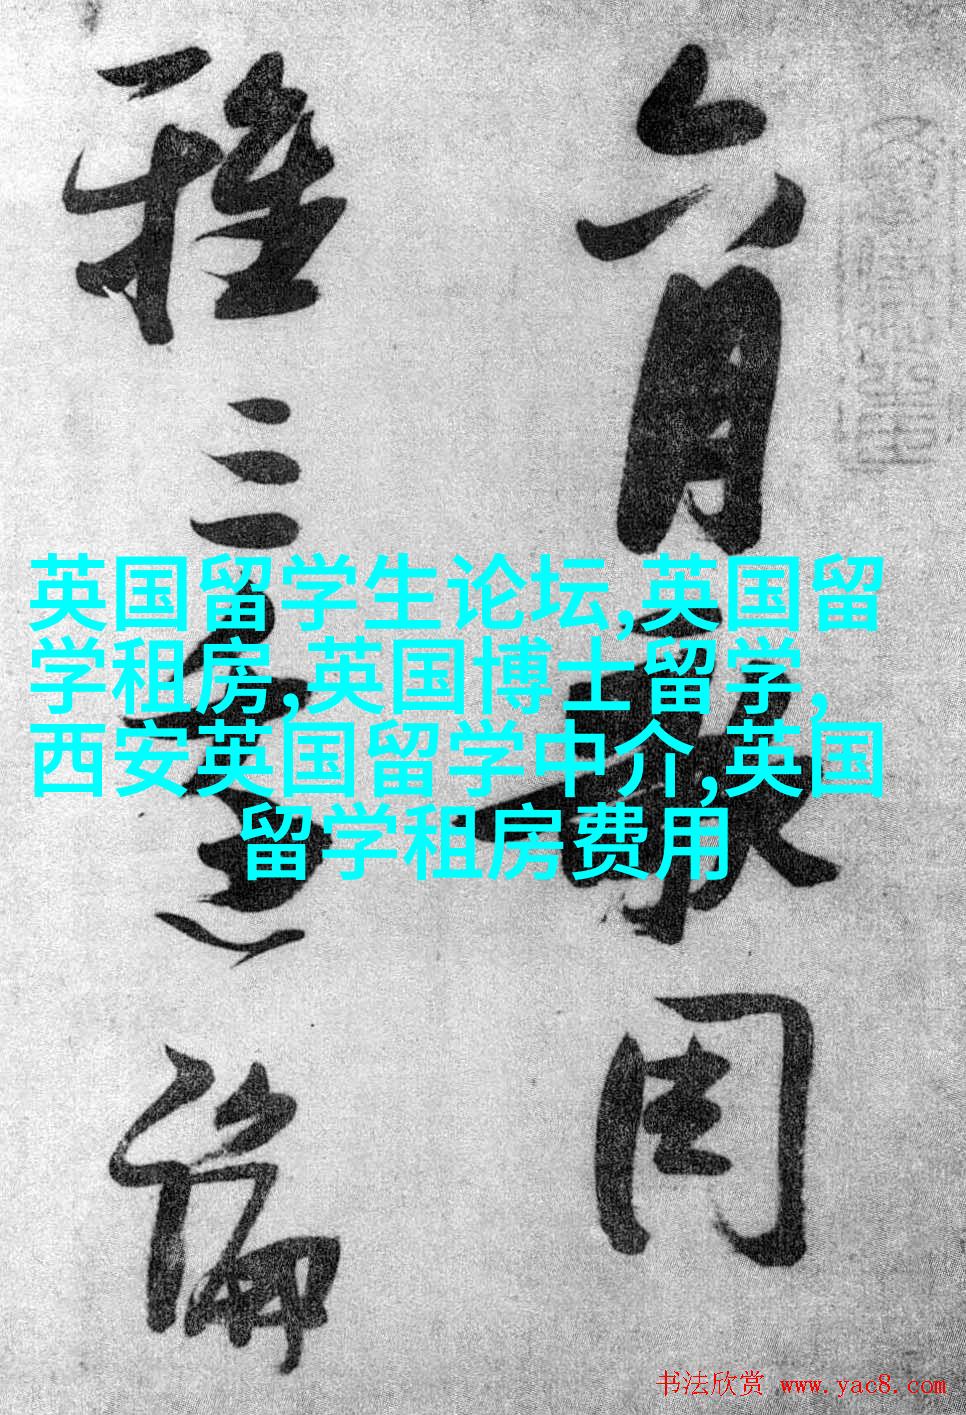 英国留学生论坛,英国留
学租房,英国博士留学,
西安英国留学中介,英国
留学租房费用
六月周
雅三論
书法欣赏 www.yac8.com